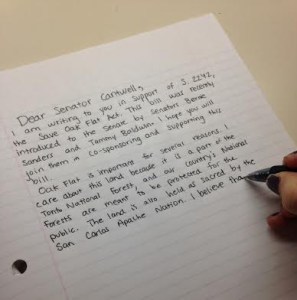 Dear Senator Cantwell,
I am writing to you in support of S. 2242,
the Save Oak Flat Act. This bill was recently
introduced to the Senate by Senators Bernie
Sanders and Tammy Baldwin. I hope you will
join them in co-sponsoring and supporting this
bill.
Oak Flat is important for several reasons. I
care about this land because it is a part of the
Tonto National Forest, and our country's National
Forests are meant to be protected for the
public. The land is also held as sacred by the
San Carlos Apache Nation. I believe tha